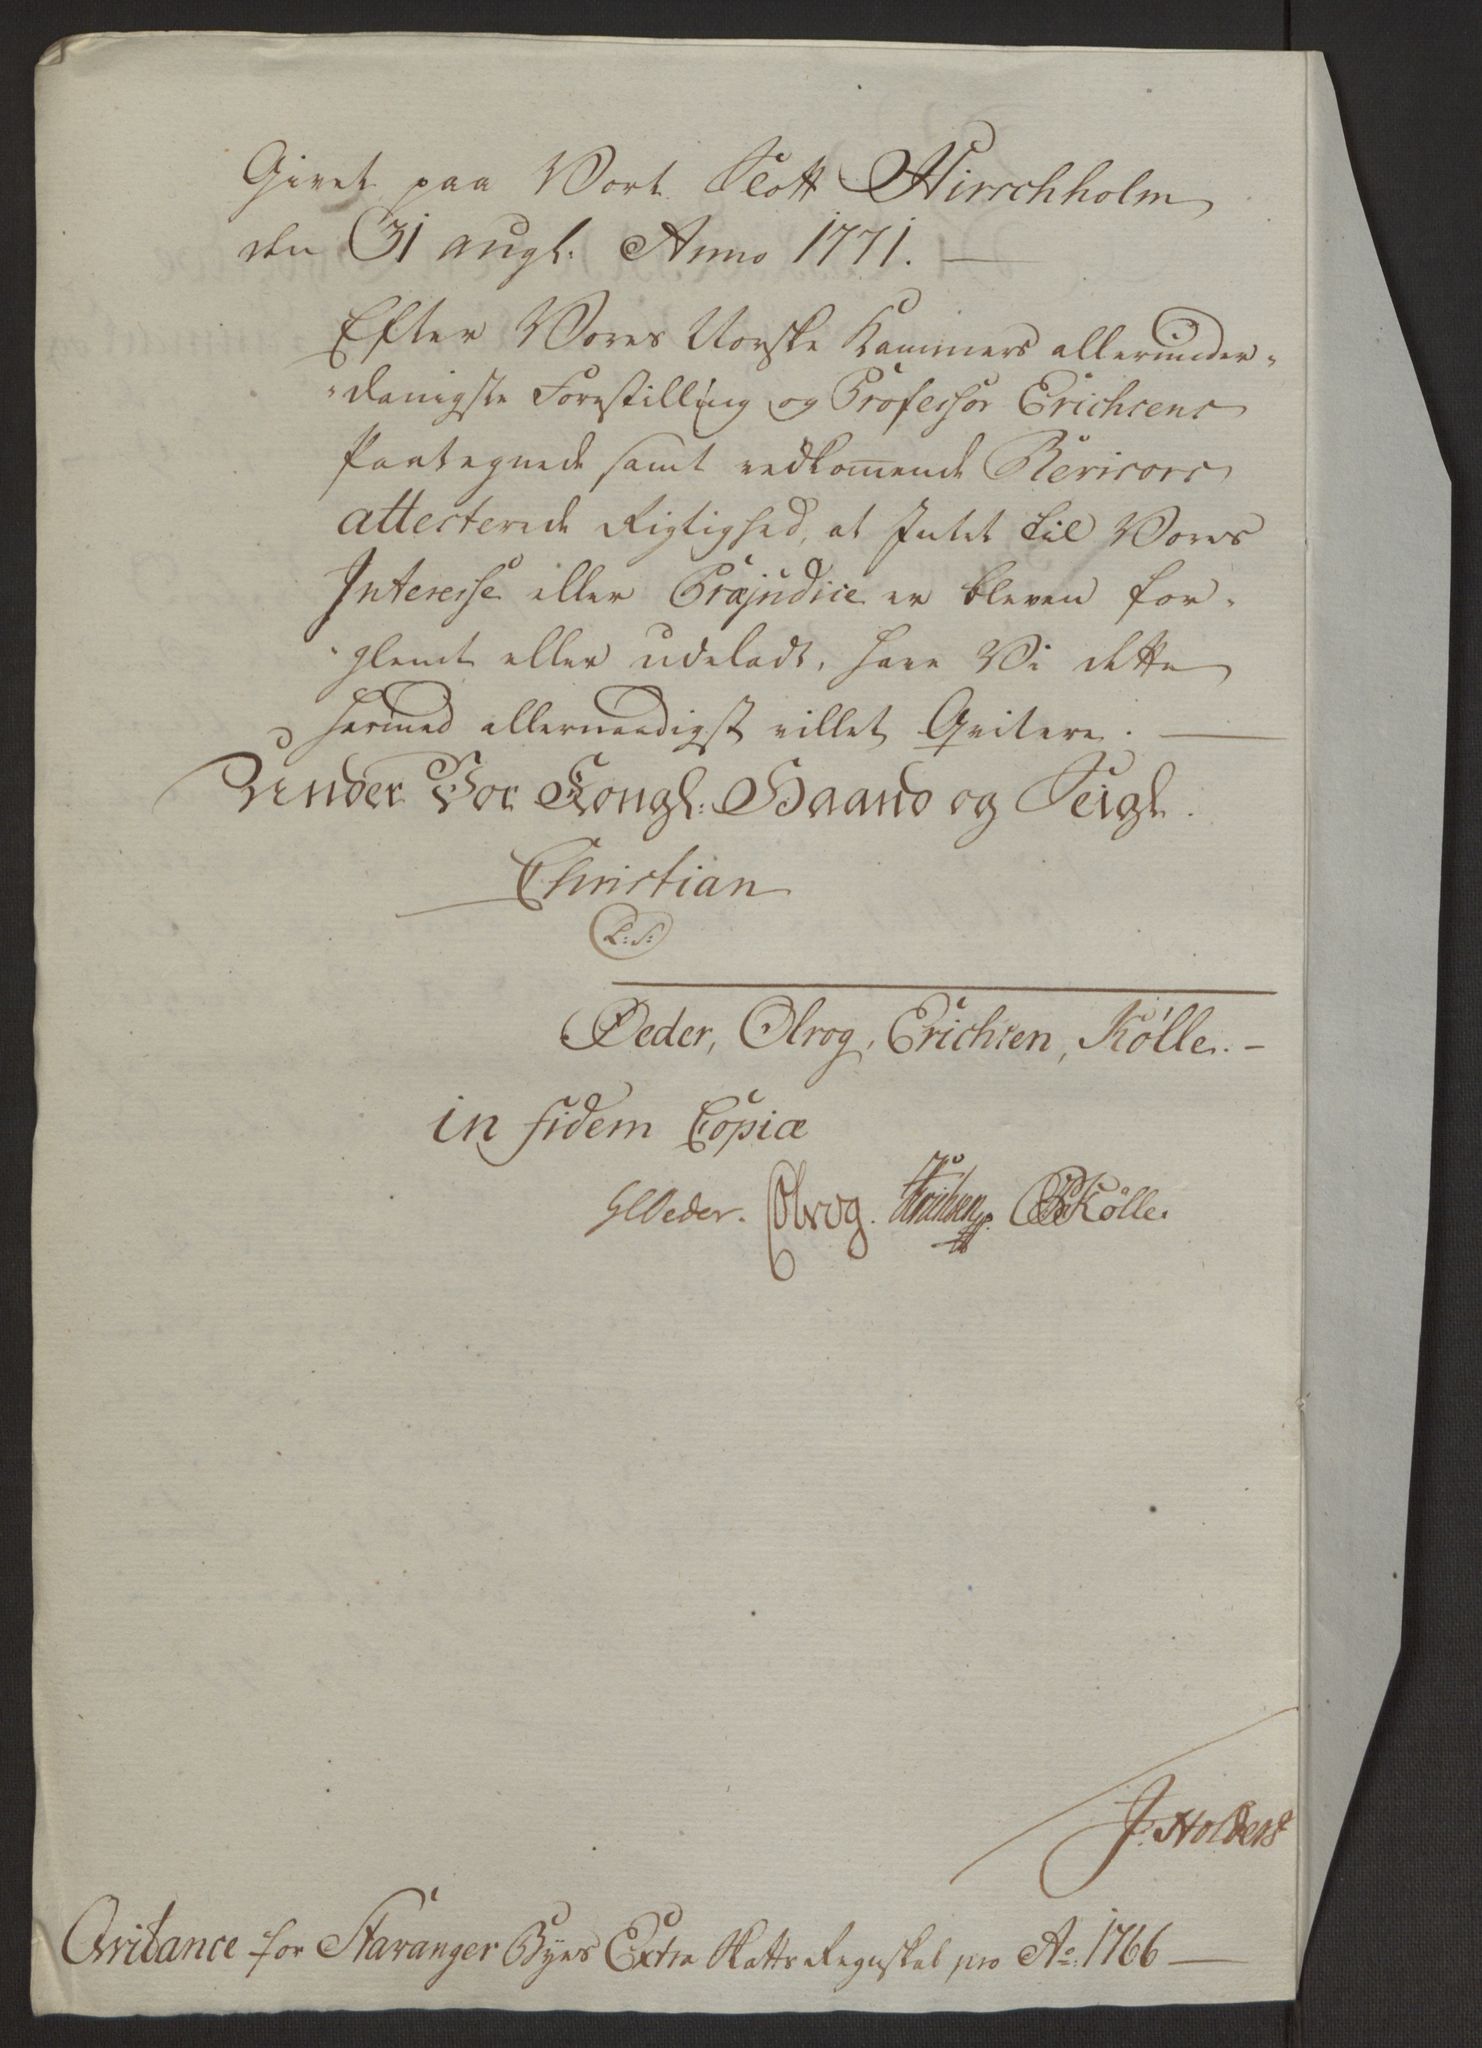 Givet paa Vort Slott Hirschholm
den 31 augl: Anno 1771. —
Efter Vores Norske Kammers allerunder-
-danigste Forestilling og Professor Erichsens
Paategnede samt vedkom̅ende Revisors
attesterede Rigtighed, at Intet til Vores
Interesse eller Præjudice er bleven for-
-glemt eller udeladt, have Vi dette
hermed allernaadigst villet Qvitere. —
Under Vor Kongl: Haand og Seigl.
Christian
L: S:
Oeder, Olrog, Erichsen, Kølle. -
in fidem Copiæ
GCOeder. Olrog. Erichsen. Kölle.
J. Holberg
Qvitance for Stavanger Byes Extra Skatts Regnskab pro Ao: 1766 —